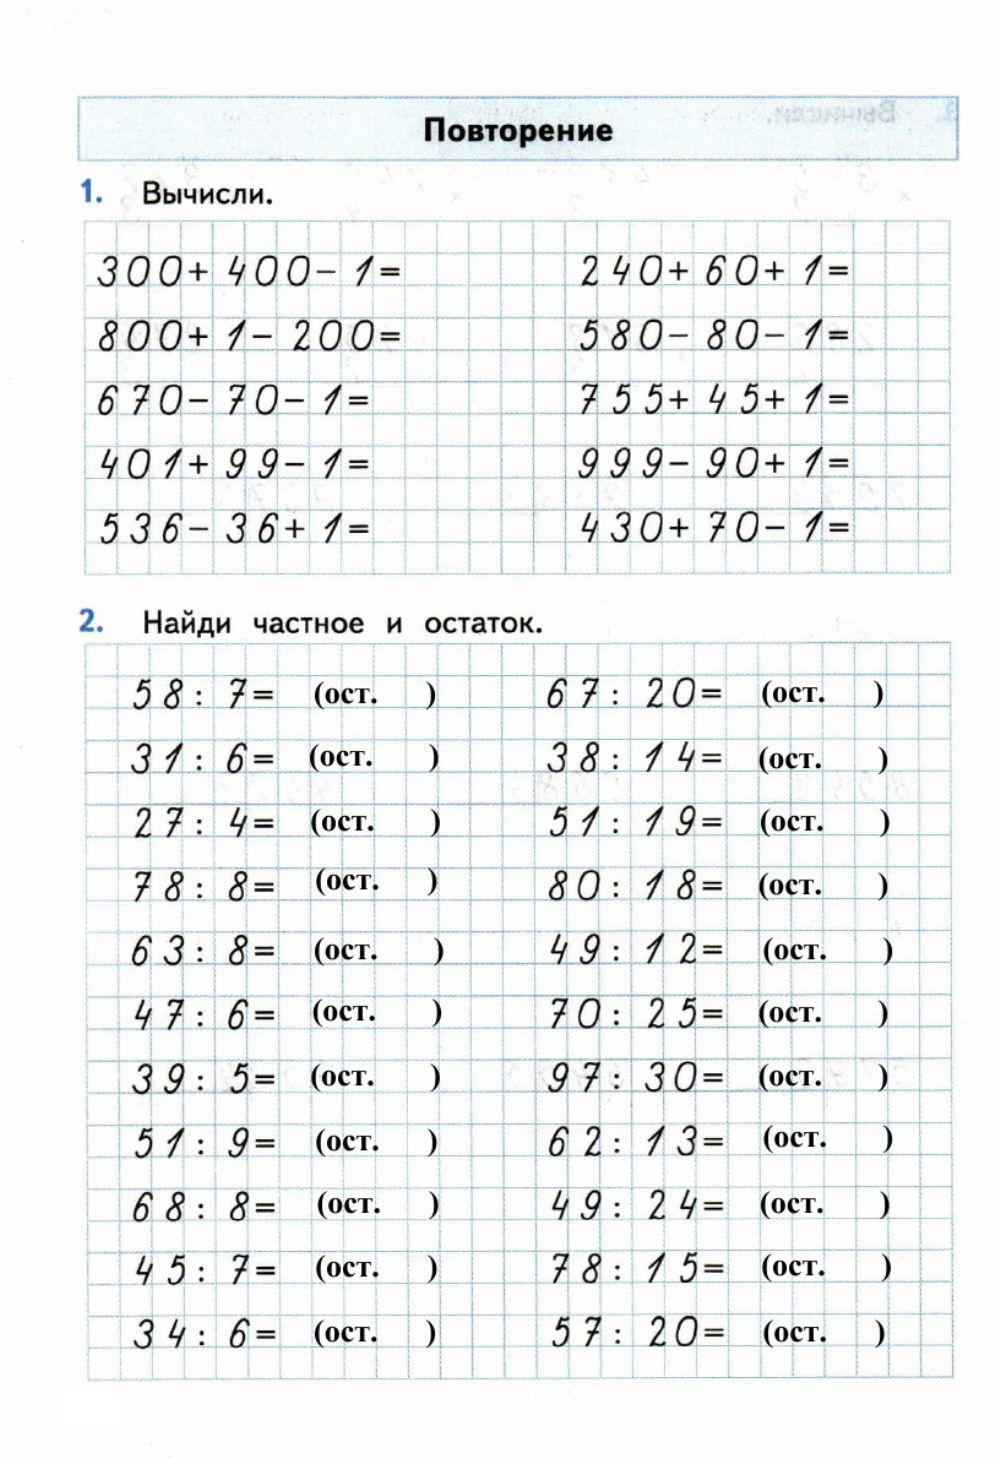 Повторение
1. Вычисли.
300+ 400- 1= 240+ 60+ 1=
800+ 1- 200= 580- 80- 1=
670- 70- 1= 755+ 45+ 1=
401+ 99- 1= 999- 90+ 1=
536- 36+ 1= 430+ 70- 1=
2. Найди частное и остаток.
58: 7= (ост. ) 67: 20= (ост. )
31: 6= (ост. ) 38: 14= (ост. )
27: 4= (ост. ) 51: 19= (ост. )
78: 8= (ост. ) 80: 18= (ост. )
63: 8= (ост. ) 49: 12= (ост. )
47: 6= (ост. ) 70: 25= (ост. )
39: 5= (ост. ) 97: 30= (ост. )
51: 9= (ост. ) 62: 13= (ост. )
68: 8= (ост. ) 49: 24= (ост. )
45: 7= (ост. ) 78: 15= (ост. )
34: 6= (ост. ) 57: 20= (ост. )